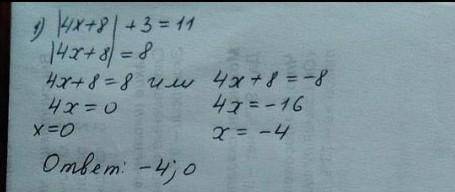 1) |4x+8| + 3 = 11
|4x+8| = 8
4x+8 = 8 или 4x+8 = -8
4x = 0 4x = -16
x=0 x = -4
Ответ: -4; 0